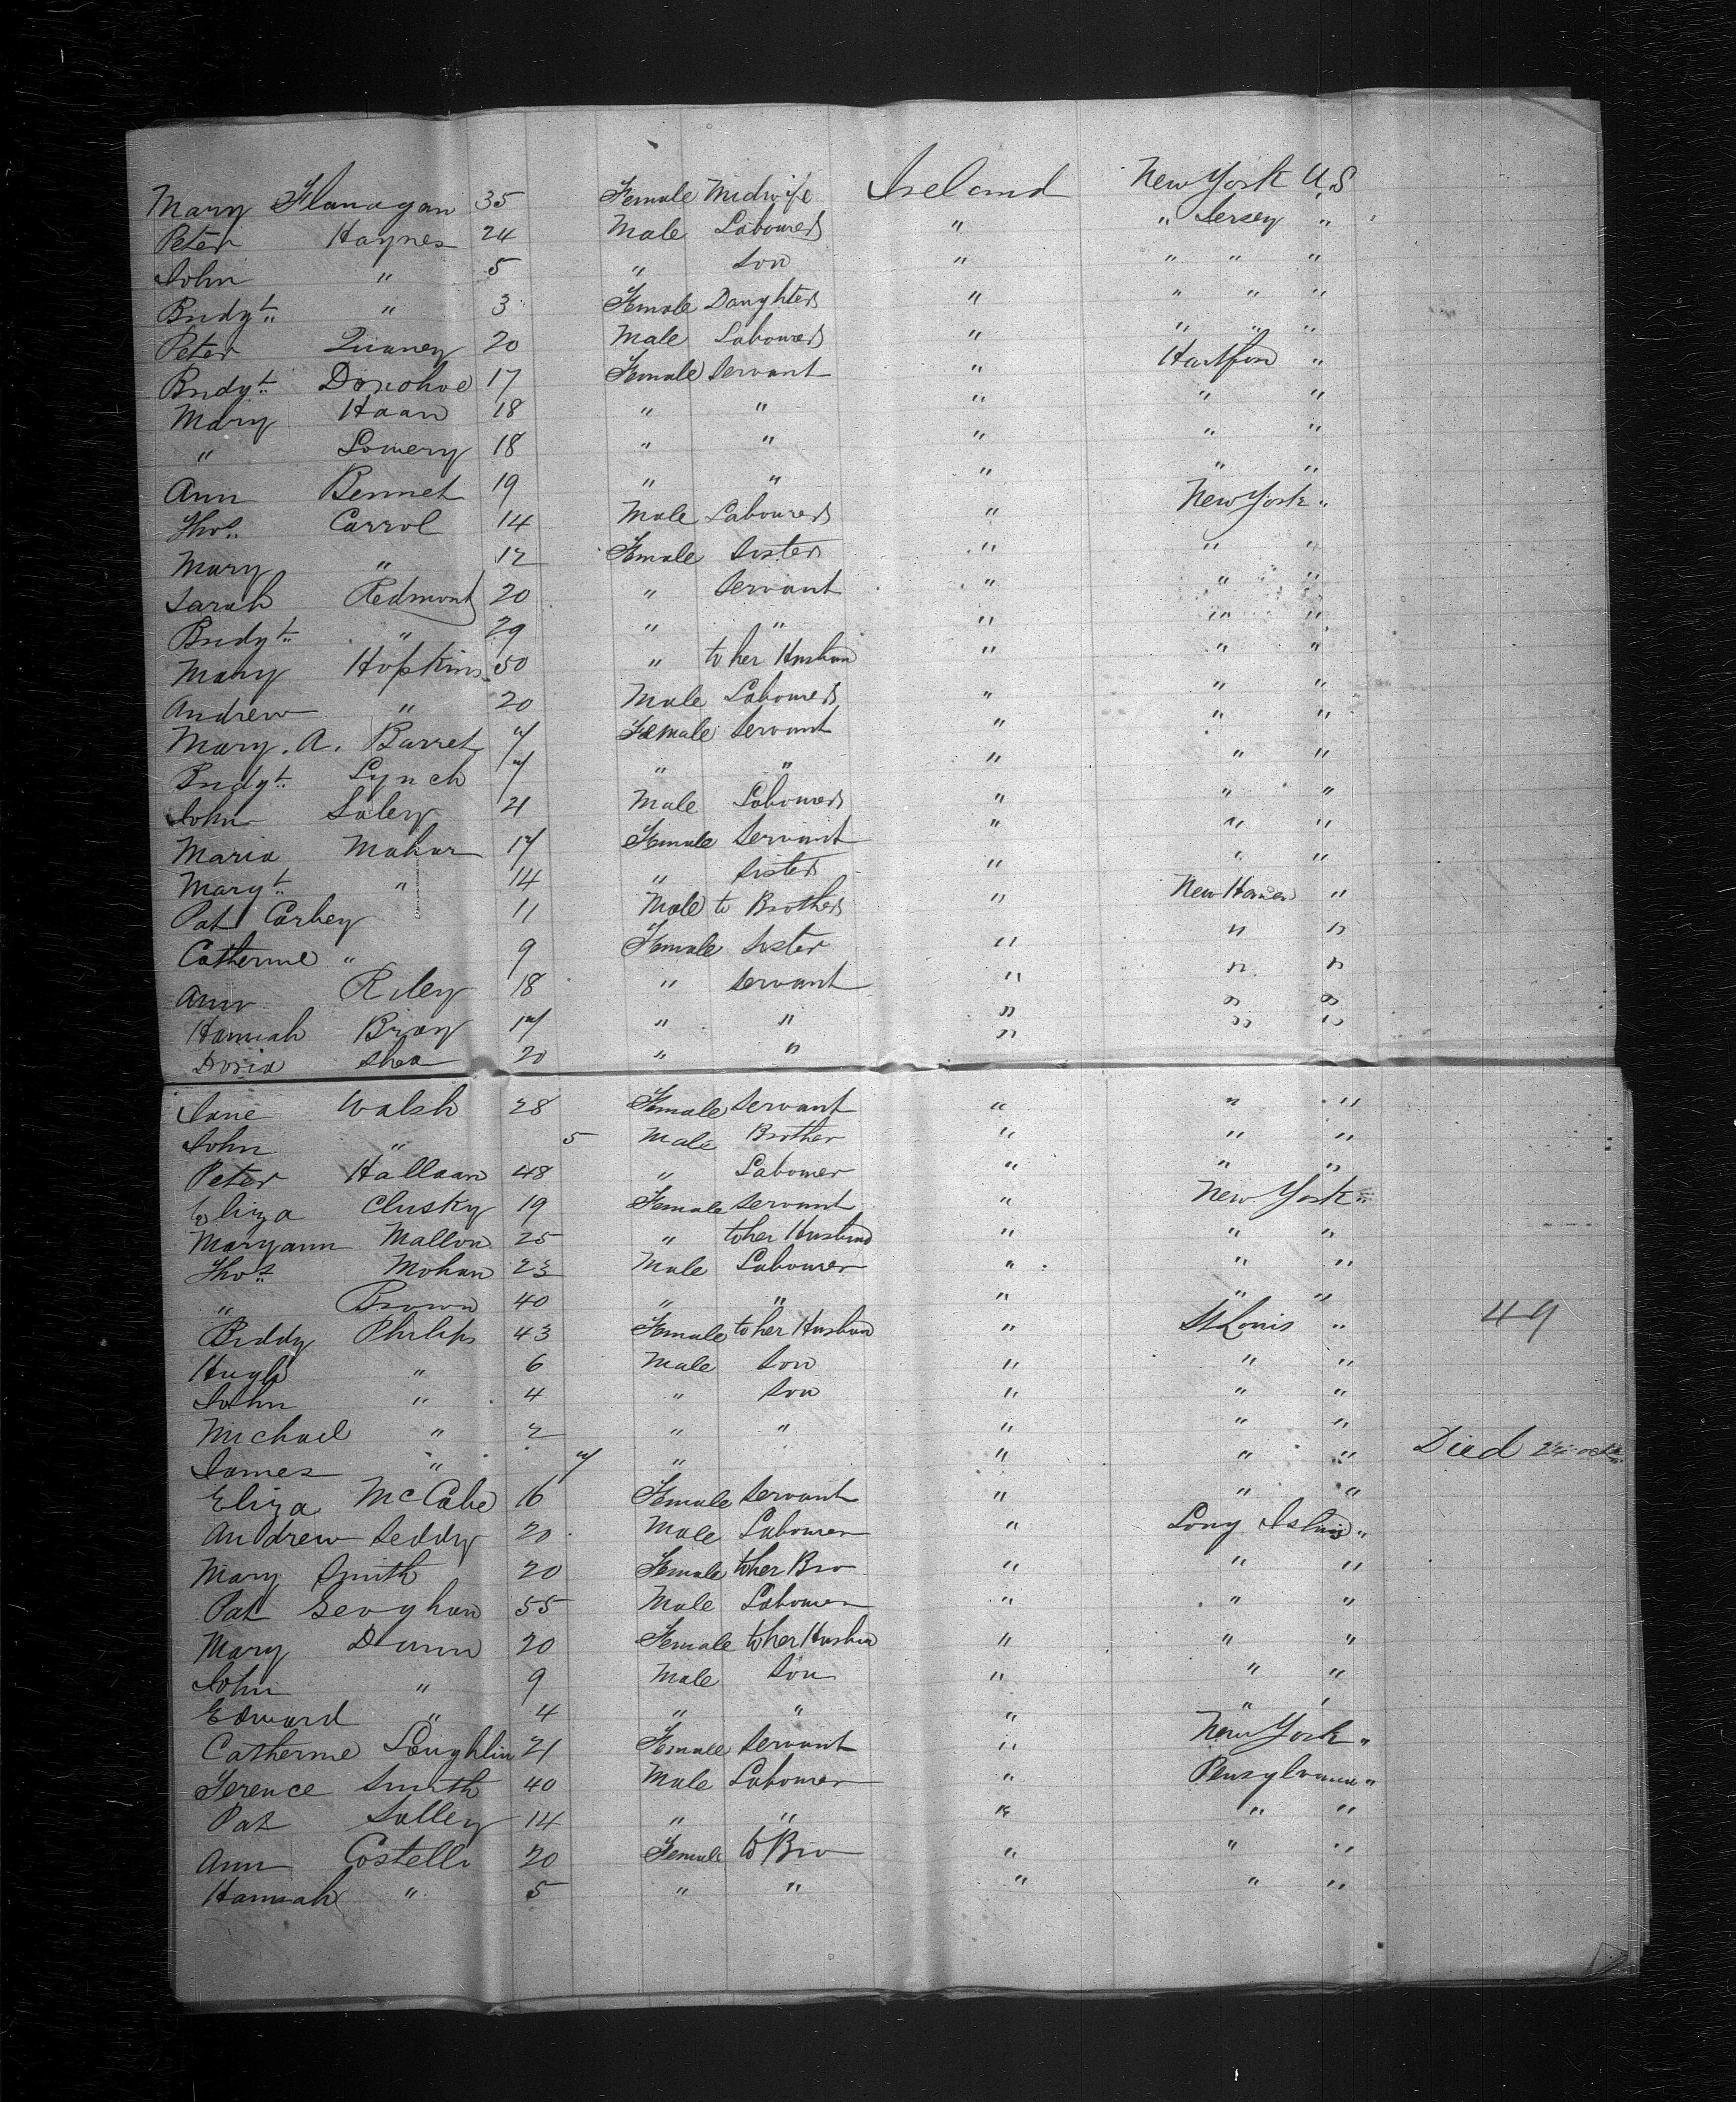 Mary Flanagan 35 Female Midwife Ireland New York U.S
Peter Haynes 24 Male Labourer " " Jersey "
John " 5 " Son " " " "
Bridgt " 3 Female Daughter " " " "
Peter 20 Male Labourer " " " "
Bridgt Donohoe 17 Female Servant " "
Mary Haan 18 " " " " "
" Lowery 18 " " " " "
Ann Bennet 19 " " " " "
Thos Carrol 14 Male Labourer " New York "
Mary " 12 Female Sister " " "
Sarah Redmond 20 " Servant " " "
Bridgt " 29 " " " " "
Mary Hopkins 50 " to her Husban " " "
Andrew " 20 Male Labourer " " "
Mary . A . Barret Female Servant " " "
Bridgt Lynch " " " " "
John 21 Male Labourer " " "
Maria Mahar 17 Female Servant " " "
Margt " 14 " Sister " " "
Pat Corbey 11 Male to Brother " New Haven "
Catherine " 9 Female Sister " " "
Ann Riley 18 " Servant " " "
Hannah Bray 17 " " " " "
Doria Shea 20 " " " " "
Jane Walsh 28 Female Servant " " "
John " 5 Male Brother " " "
Peter Hallaan 48 " Labourer " " "
Eliza Clusky 19 Female Servant " New York "
Maryann Mallon 25 " to her Husband " " "
Thos Mohan 23 Male Labourer " " "
" Brown 40 " " " " "
Biddy Philips 43 Female to her Husban " St Louis " 49
Hugh " 6 Male Son " " "
John " 4 " Son " " "
Michael " 2 " " " " "
James " " " " " Died
Eliza McCabe 16 Female Servant " " "
Andrew Seddy 20 Male Labourer " Long "
Mary Smith 20 Female to her Bro " " "
Pat Geoghan 55 Male Labourer " " "
Mary Dunn 20 Female to her " " "
John " 9 Male Son " " "
Edward " 4 " " " " "
Catherine Loughlin 21 Female Servant " New York "
Terence Smith 40 Male Labourer " "
Pat 14 " " " " "
Ann Costello 20 Female to Bro " " "
Hannah " 5 " " " " "